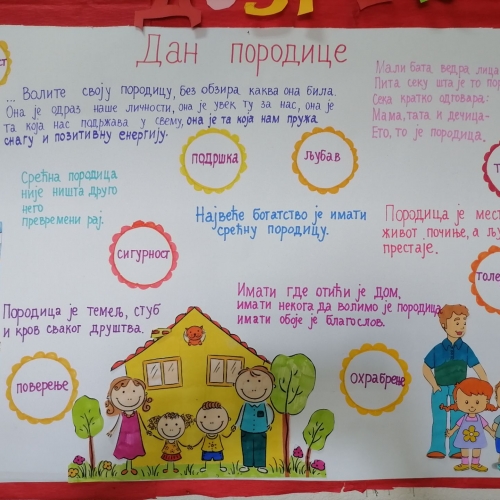 Дан породице
... Волите своју породицу, без обзира каква она била.
Она је одраз наше личности, она је увек ту за нас, она је
та која нас подржава у свему, она је та која нам пружа
снагу и позитивну енергију.
Мали бата, ведра лица
Пита секу шта је то пор
Сека кратко одговара:
Мама, тата и дечица-
Ето, то је породица.
подршка
љубав
Срећна породица
није ништа друго
него
превремени рај.
Највеће богатство је имати
срећну породицу.
Породица је мес
живот почиње, а љу
престаје.
сигурност
толе
Имати где отићи је дом,
имати некога да волимо је породица
имати обоје је благослов.
Породица је темељ, стуб
и кров сваког друштва.
поверење
охрабрење